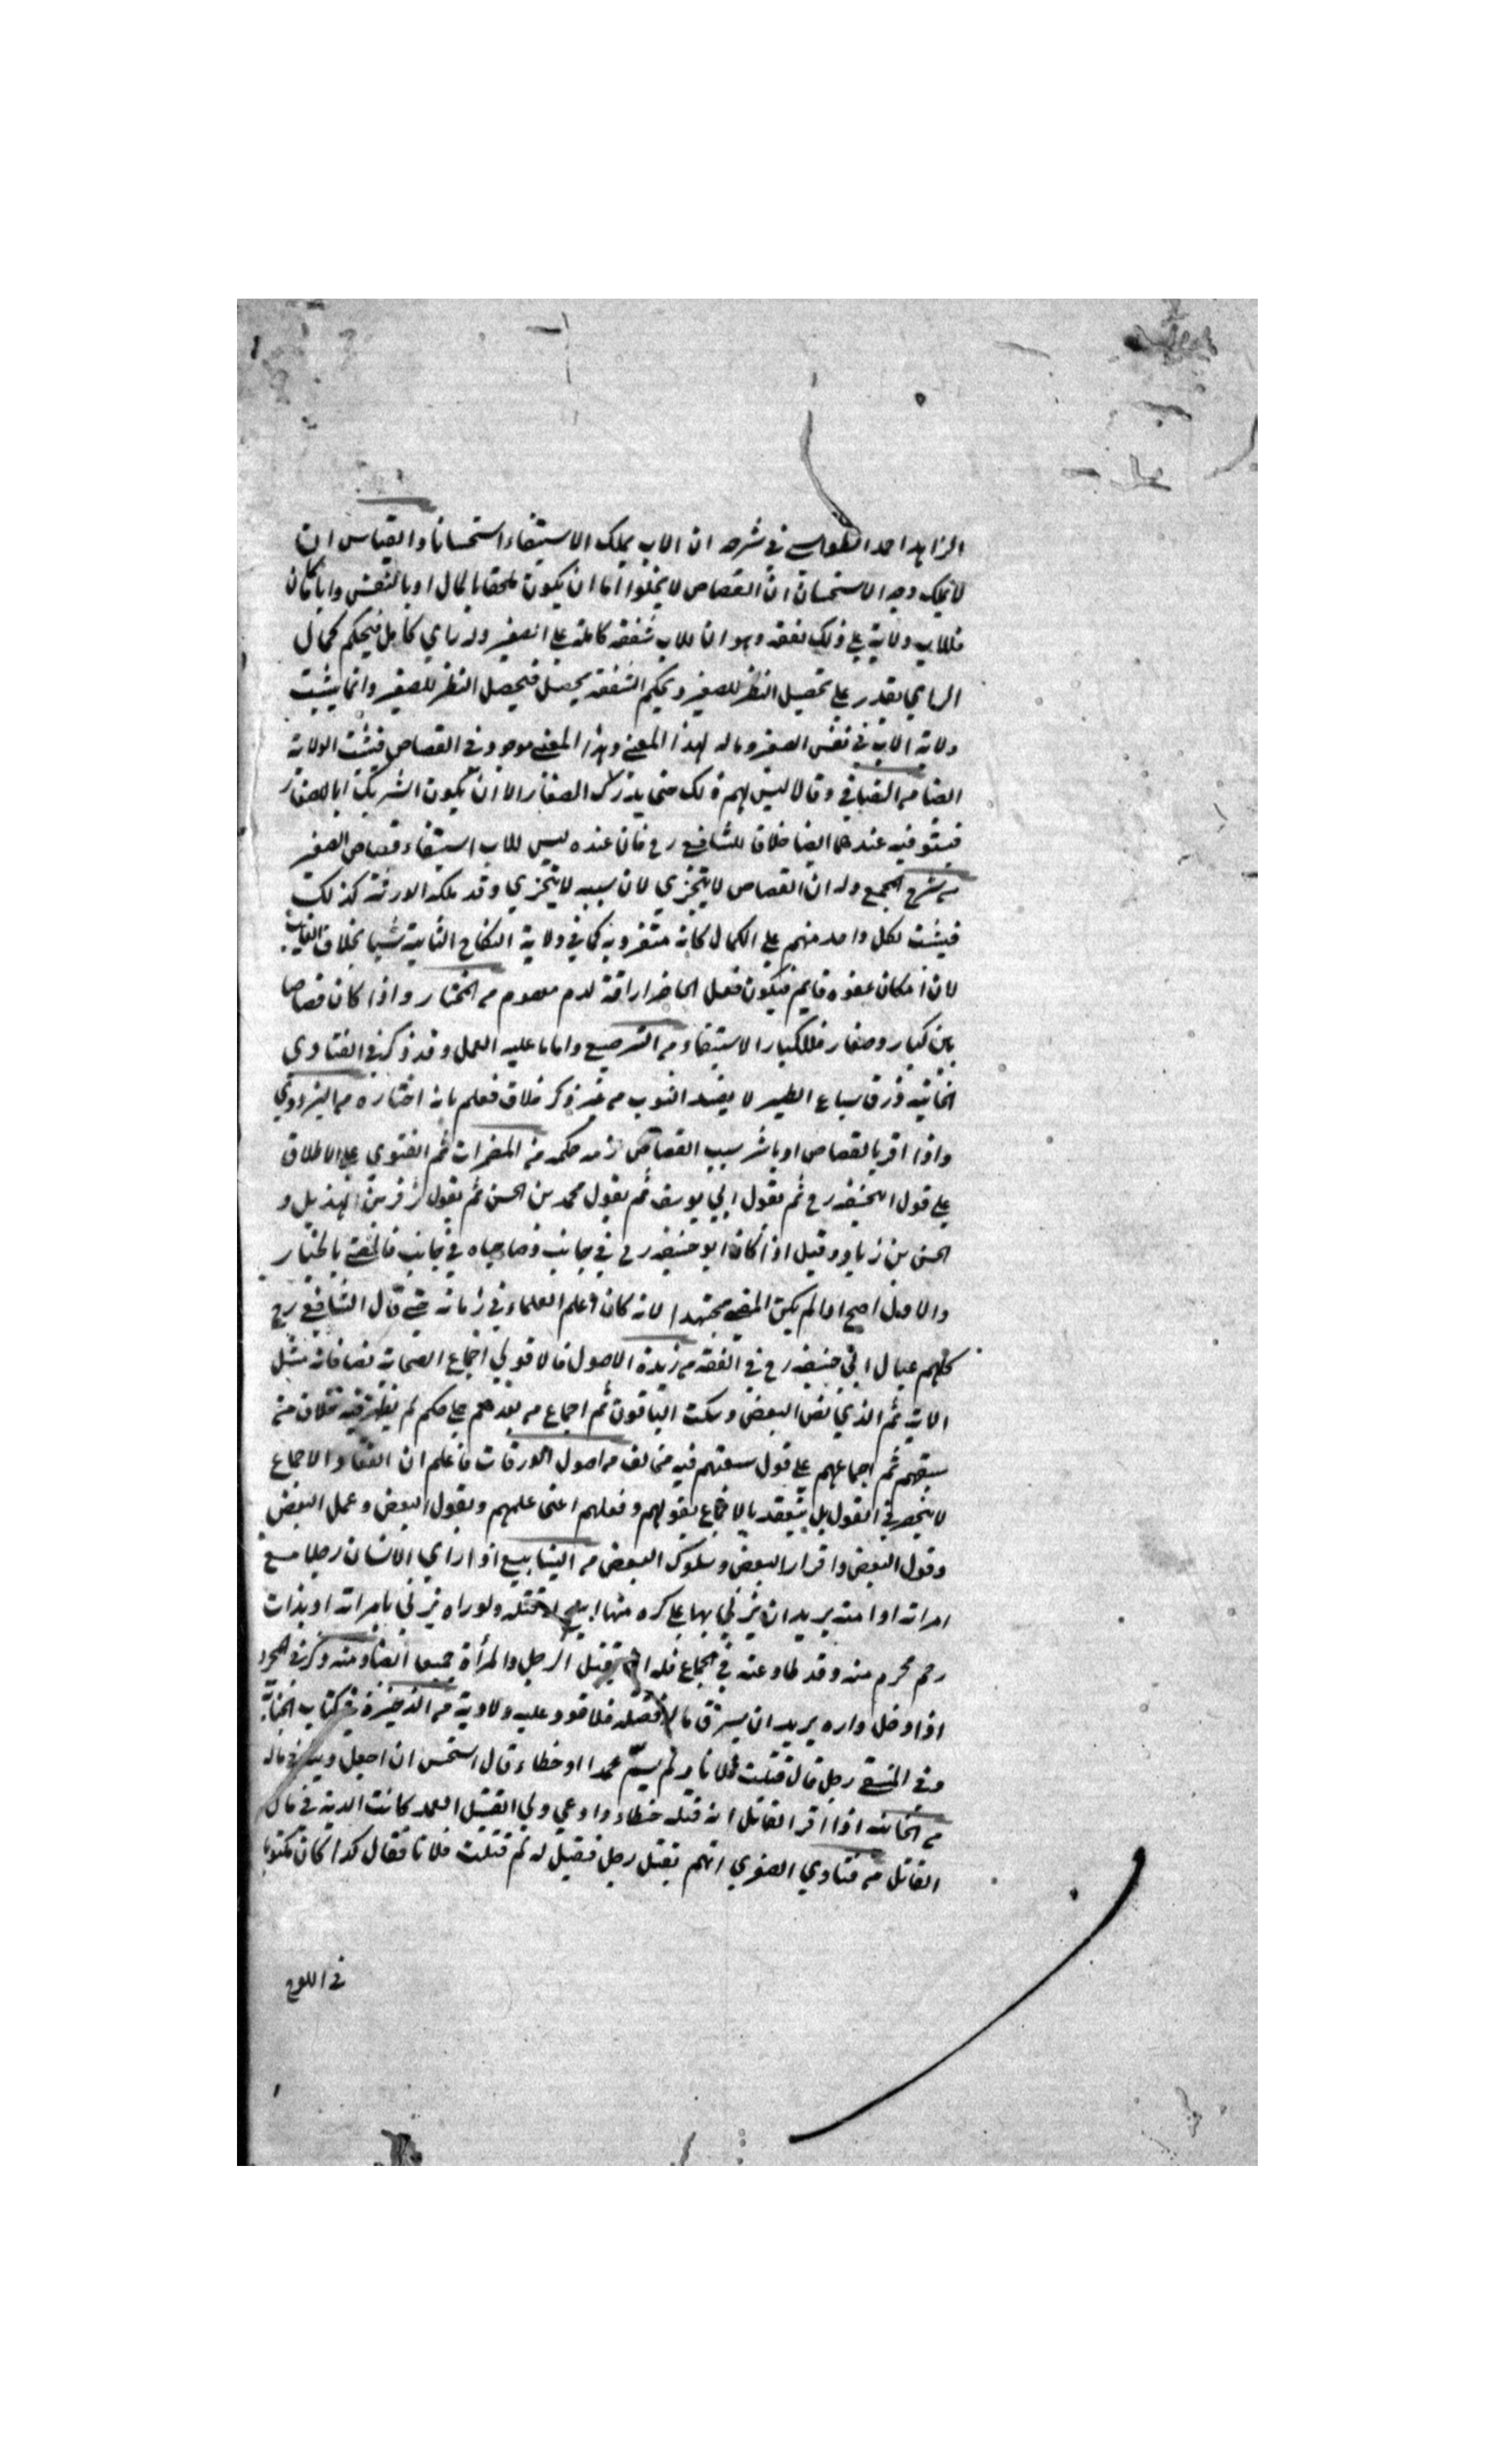 الزاهد احمد الطواويسي في شرحه ان الاب يملك الاستيفاء استحسانا والقياس ان
لا يملك وجه الاستحسان ان القصاص لا يخلوا اما ان يكون ملحقا بالمال او بالنفس وايا ما كان
فللاب ولاية على ذلك نفقه وهو ان للاب شفقة كاملة على الصغير وله راي كامل فبحكم كمال
الراي يقدر على تحصيل النظر للصغير وبحكم الشفقة يحصل فيحصل النظر للصغير وانما يثبت
ولاية الاب في نفس الصغير وماله لهذا المعنى وهذا المعنى موجود في القصاص فيثبت الولاية
ايضا من وقالا ليس لهم ذلك حتى يدرك الصغار الا ان يكون الشريك ابا للصغار
فيستوفيه عندهما ايضا خلافا للشافعي رح فان عنده ليس للاب استيفاء قصاص الصغير
من شرح المجمع وله ان القصاص لا يتجزي لان سببه لا يتجزي وقد ملكه الورثة كذلك
فيثبت لكل واحد منهم على الكمال كانه متفرد به كما في ولاية النكاح الثابتة بخلاف الغايب
لان امكان عفوه قايم فيكون فعل الحاضر اراقة لدم معصوم من المختار واذا كان قصاصا
بين كبار وصغار فللكبار الاستيفاء من الترصيع واما ما عليه العمل وقد ذكر في الفتاوي
الخانية ذرق سباع الطير لا يفسد الثوب من غير ذكر خلاف فعلم بانه اختاره من البزدوي
واذا اقر بالقصاص او باشر سبب القصاص لزمه حكمه من المضمرات ثم الفتوي على الاطلاق
على قول ابي حنيفة رح ثم بقول ابي يوسف ثم بقول محمد بن الحسن ثم بقول زفر بن الهذيل و
الحسن بن زياد وقيل اذا كان ابو حنيفة رح في جانب وصاحباه في جانب فالمفتي بالخيار
والاول اصح اذا لم يكن المفتي مجتهدا لانه كان اعلم العلماء في زمانه حتى قال الشافعي رح
كلهم عيال ابي حنيفة رح في الفقه من زبدة الاصول فالاقوي اجماع الصحابة نصا فانه مثل
الاية ثم الذي نص البعض وسكت الباقون ثم اجماع من بعدهم على حكم لم يظهر فيه خلاف من
سبقهم ثم اجماعهم على قول سبقهم فيه مخالف من اصول الورقات فاعلم ان انعقاد الاجماع
لا ينحصر في القول بل ينعقد بالاجماع بقولهم وفعلهم اعنى علمهم وبقول البعض وعمل البعض
وقول البعض واقرار البعض وسلوك البعض من الينابيع اذا راي الانسان رجلا مع
امراته او امته يريد ان يزني بها على كره منها قتله ولو راه يزني بامراته او بذات
رحم محرم منه وقد طاوعته في الجماع فله ان يقتل الرجل والمرأة جميعا ايضا ومنه وذكر في المجرد
اذا دخل داره يريد ان يسرق ماله فقتله فلا قود عليه ولا دية من الذخيرة في كتاب الجناية
وفي المنتقى رجل قال قتلت فلانا ولم يسم عمدا او خطاء قال استحسن ان اجعل ديته في ماله
من الخانية اذا اقر القاتل انه قتله خطاء وادعي ولي القتيل العمد كانت الدية في مال
القاتل من فتاوي الصغري اتهم بقتل رجل فقيل له لم قتلت فلانا فقال كذا كان مكتوبا
في اللوح